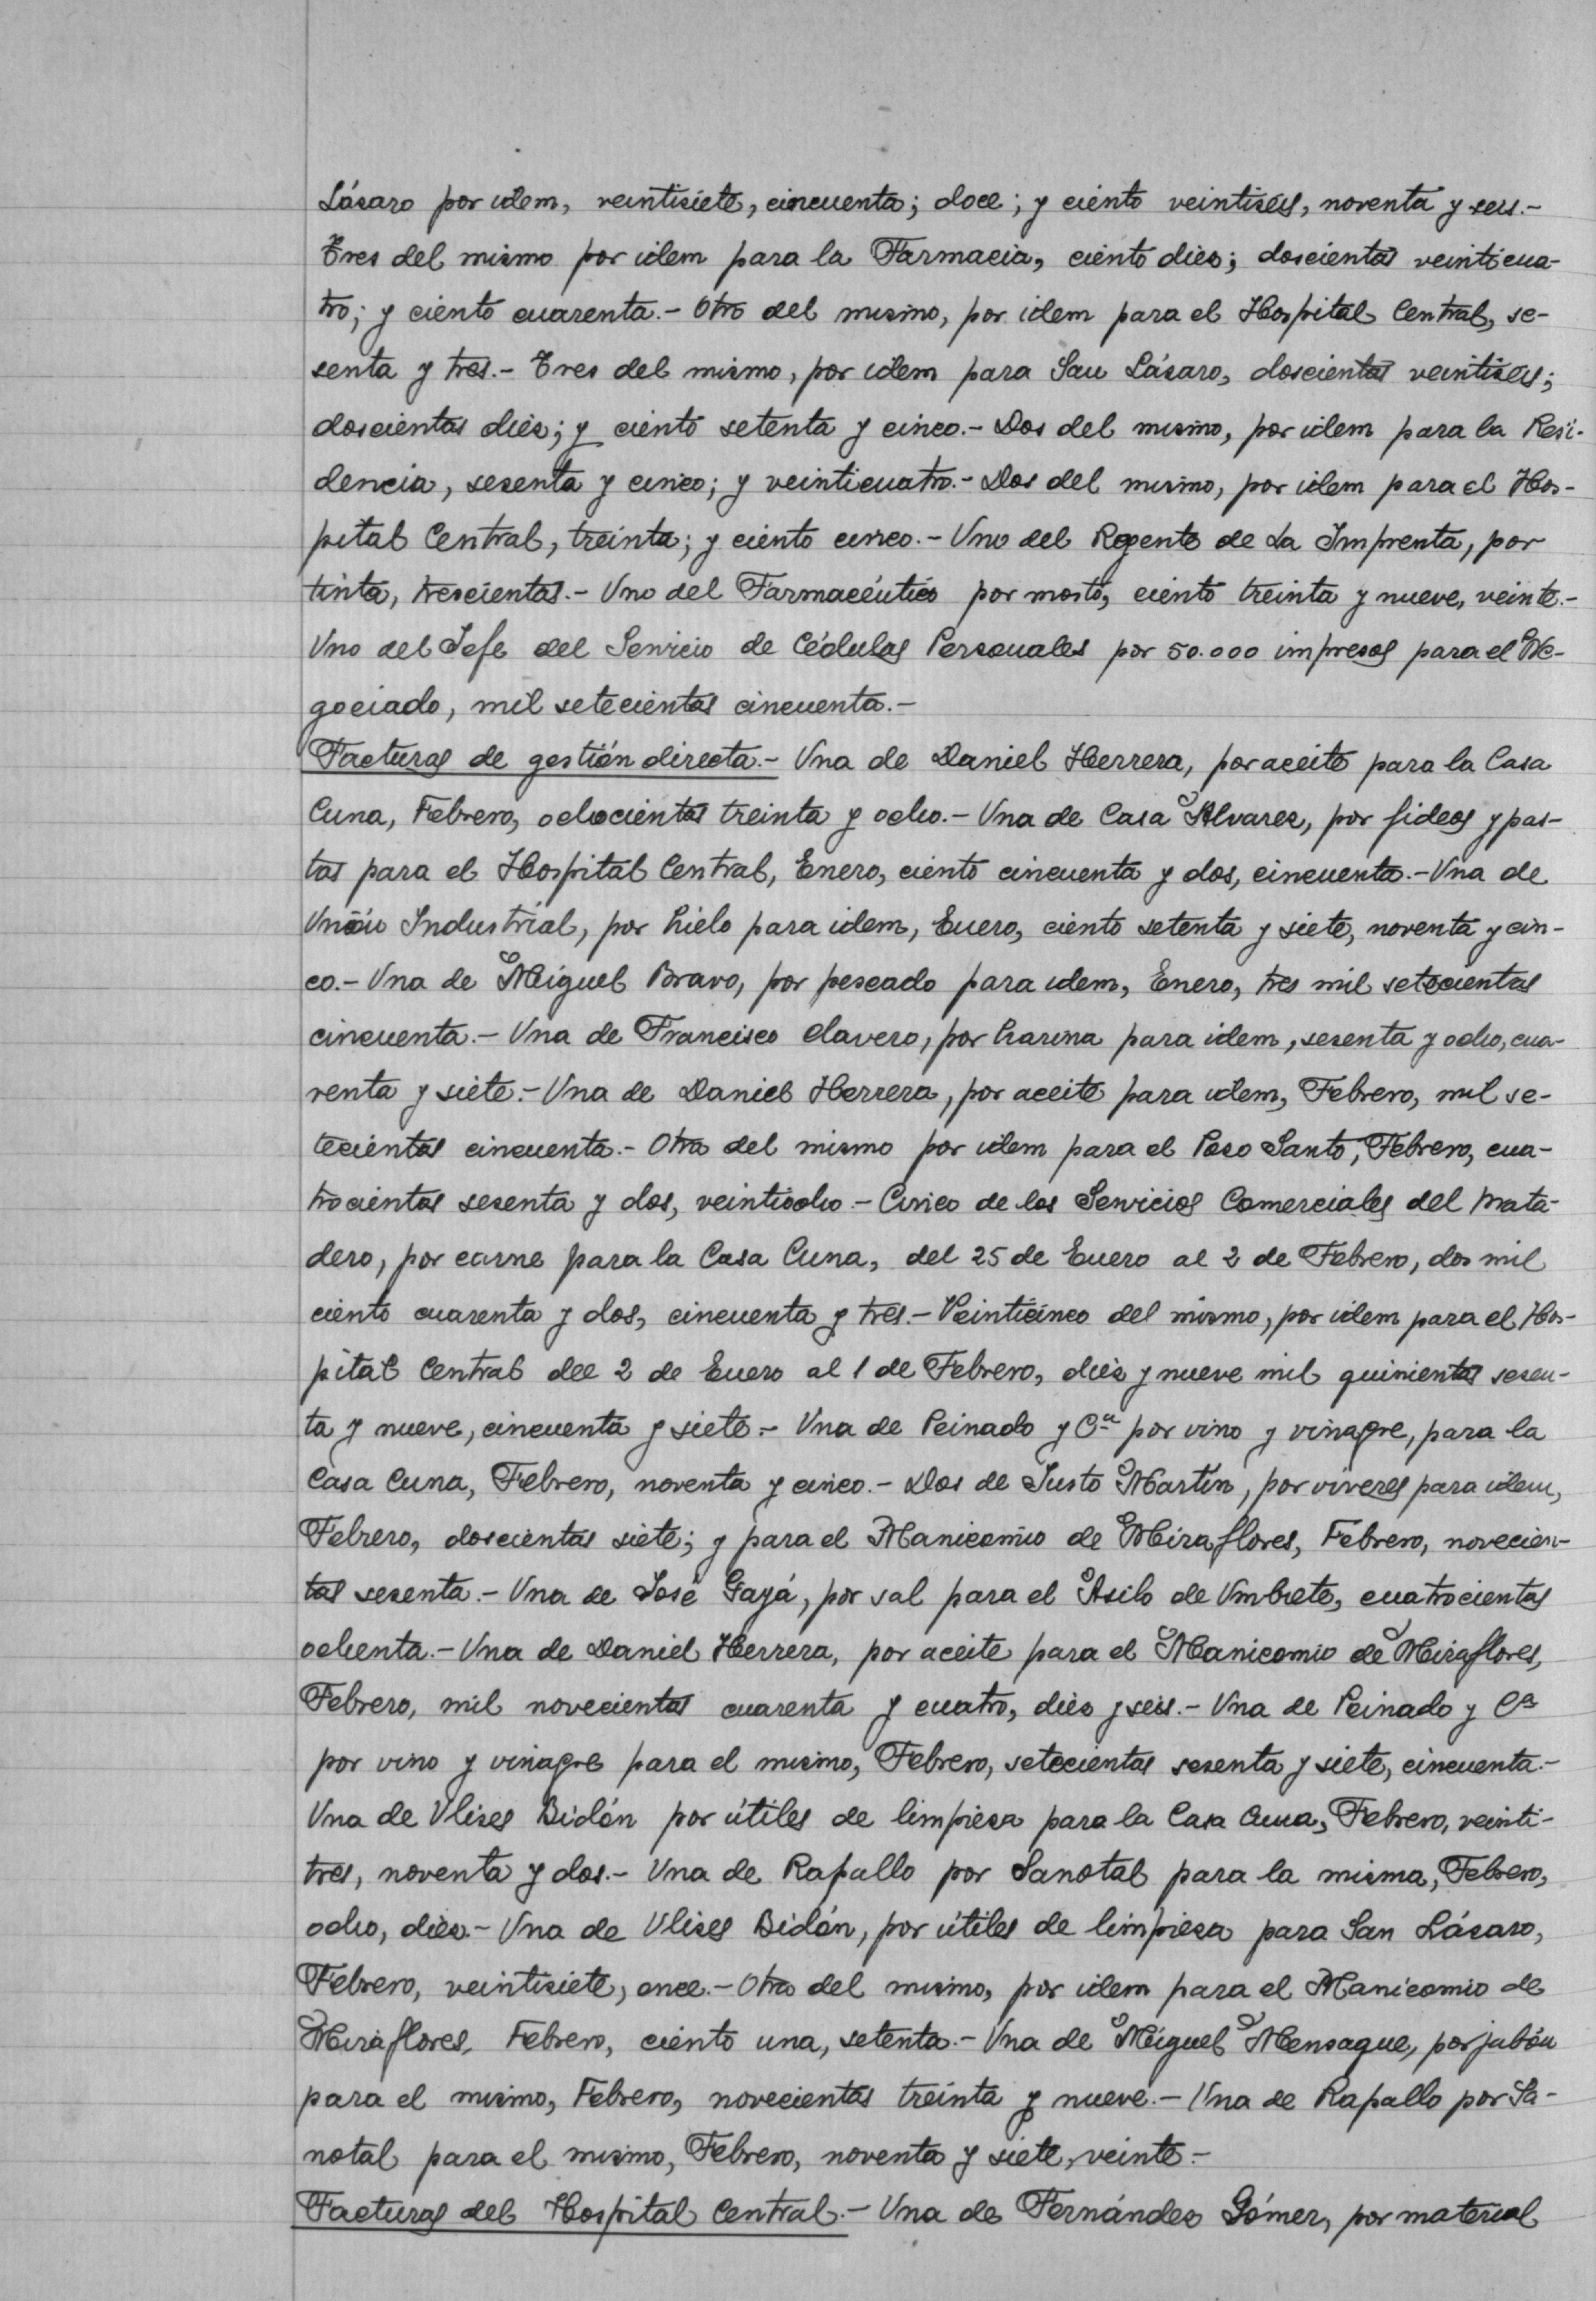 Lázaro por idem, veintisiete, cincuenta; doce; y ciento veintiséis, noventa y seis.-
Tres del mismo por idem para la Farmacia, ciento diez; doscientas veinticua-
tro; y ciento cuarenta.- Otro del mismo, por idem para el Hospital Central, se-
senta y tres.- Tres del mismo, por idem para San Lázaro, doscientas veintiséis;
doscientas diez; y ciento setenta y cinco.- Dos del mismo, por idem para la Resi-
dencia, sesenta y cinco; y veinticuatro.- Dos del mismo, por idem para el Hos-
pital Central, treinta; y ciento cinco.- Uno del Regente de La Imprenta, por
tinta, trescientas.- Uno del Farmacéutico por mosto, ciento treinta y nueve, veinte.-
Uno del Jefe del Servicio de Cédulas Personales por 50.000 impresos para el Ne-
gociado, mil setecientas cincuenta.-
Facturas de gestión directa.- Una de Daniel Herrera, por aceite para la Casa
Cuna, Febrero, ochocientas treinta y ocho.- Una de Casa Alvarez, por fideos y pas-
tas para el Hospital Central, Enero, ciento cincuenta y dos, cincuenta.- Una de
Unión Industrial, por hielo para idem, Enero, ciento setenta y siete, noventa y cin-
co.- Una de Miguel Bravo, por pescado para idem, Enero, tres mil setecientas
cincuenta.- Una de Francisco Clavero, por harina para idem, sesenta y ocho, cua-
renta y siete.- Una de Daniel Herrera, por aceite para idem, Febrero, mil se-
tecientas cincuenta.- Otra del mismo por idem para el Pozo Santo, Febrero, cua-
trocientas sesenta y dos, veintiocho.- Cinco de los Servicios Comerciales del Mata-
dero, por carne para la Casa Cuna, del 25 de Enero al 2 de Febrero, dos mil
ciento cuarenta y dos, cincuenta y tres.- Veinticinco del mismo, por idem para el Hos-
pital Central del 2 de Enero al 1 de Febrero, diez y nueve mil quinientas sesen-
ta y nueve, cincuenta y siete.- Una de Peinado y Cª por vino y vinagre, para la
Casa Cuna, Febrero, noventa y cinco.- Dos de Justo Martín, por víveres para idem,
Febrero, doscientas siete; y para el Manicomio de Miraflores, Febrero, novecien-
tas sesenta.- Una de José Gayá, por sal para el Asilo de Umbrete, cuatrocientas
ochenta.- Una de Daniel Herrera, por aceite para el Manicomio de Miraflores,
Febrero, mil novecientas cuarenta y cuatro, diez y seis.- Una de Peinado y Cª
por vino y vinagre para el mismo, Febrero, setecientas sesenta y siete, cincuenta.-
Una de Ulises Bidón por útiles de limpieza para la Casa Cuna, Febrero, veinti-
tres, noventa y dos.- Una de Rapallo por Sanotal para la misma, Febrero,
ocho, diez.- Una de Ulises Bidón, por útiles de limpieza para San Lázaro,
Febrero, veintisiete, once.- Otra del mismo, por idem para el Manicomio de
Miraflores, Febrero, ciento una, setenta.- Una de Miguel Mensaque, por jabón
para el mismo, Febrero, novecientas treinta y nueve.- Una de Rapallo por Sa-
notal para el mismo, Febrero, noventa y siete, veinte.-
Facturas del Hospital Central.- Una de Fernández Gómez, por material